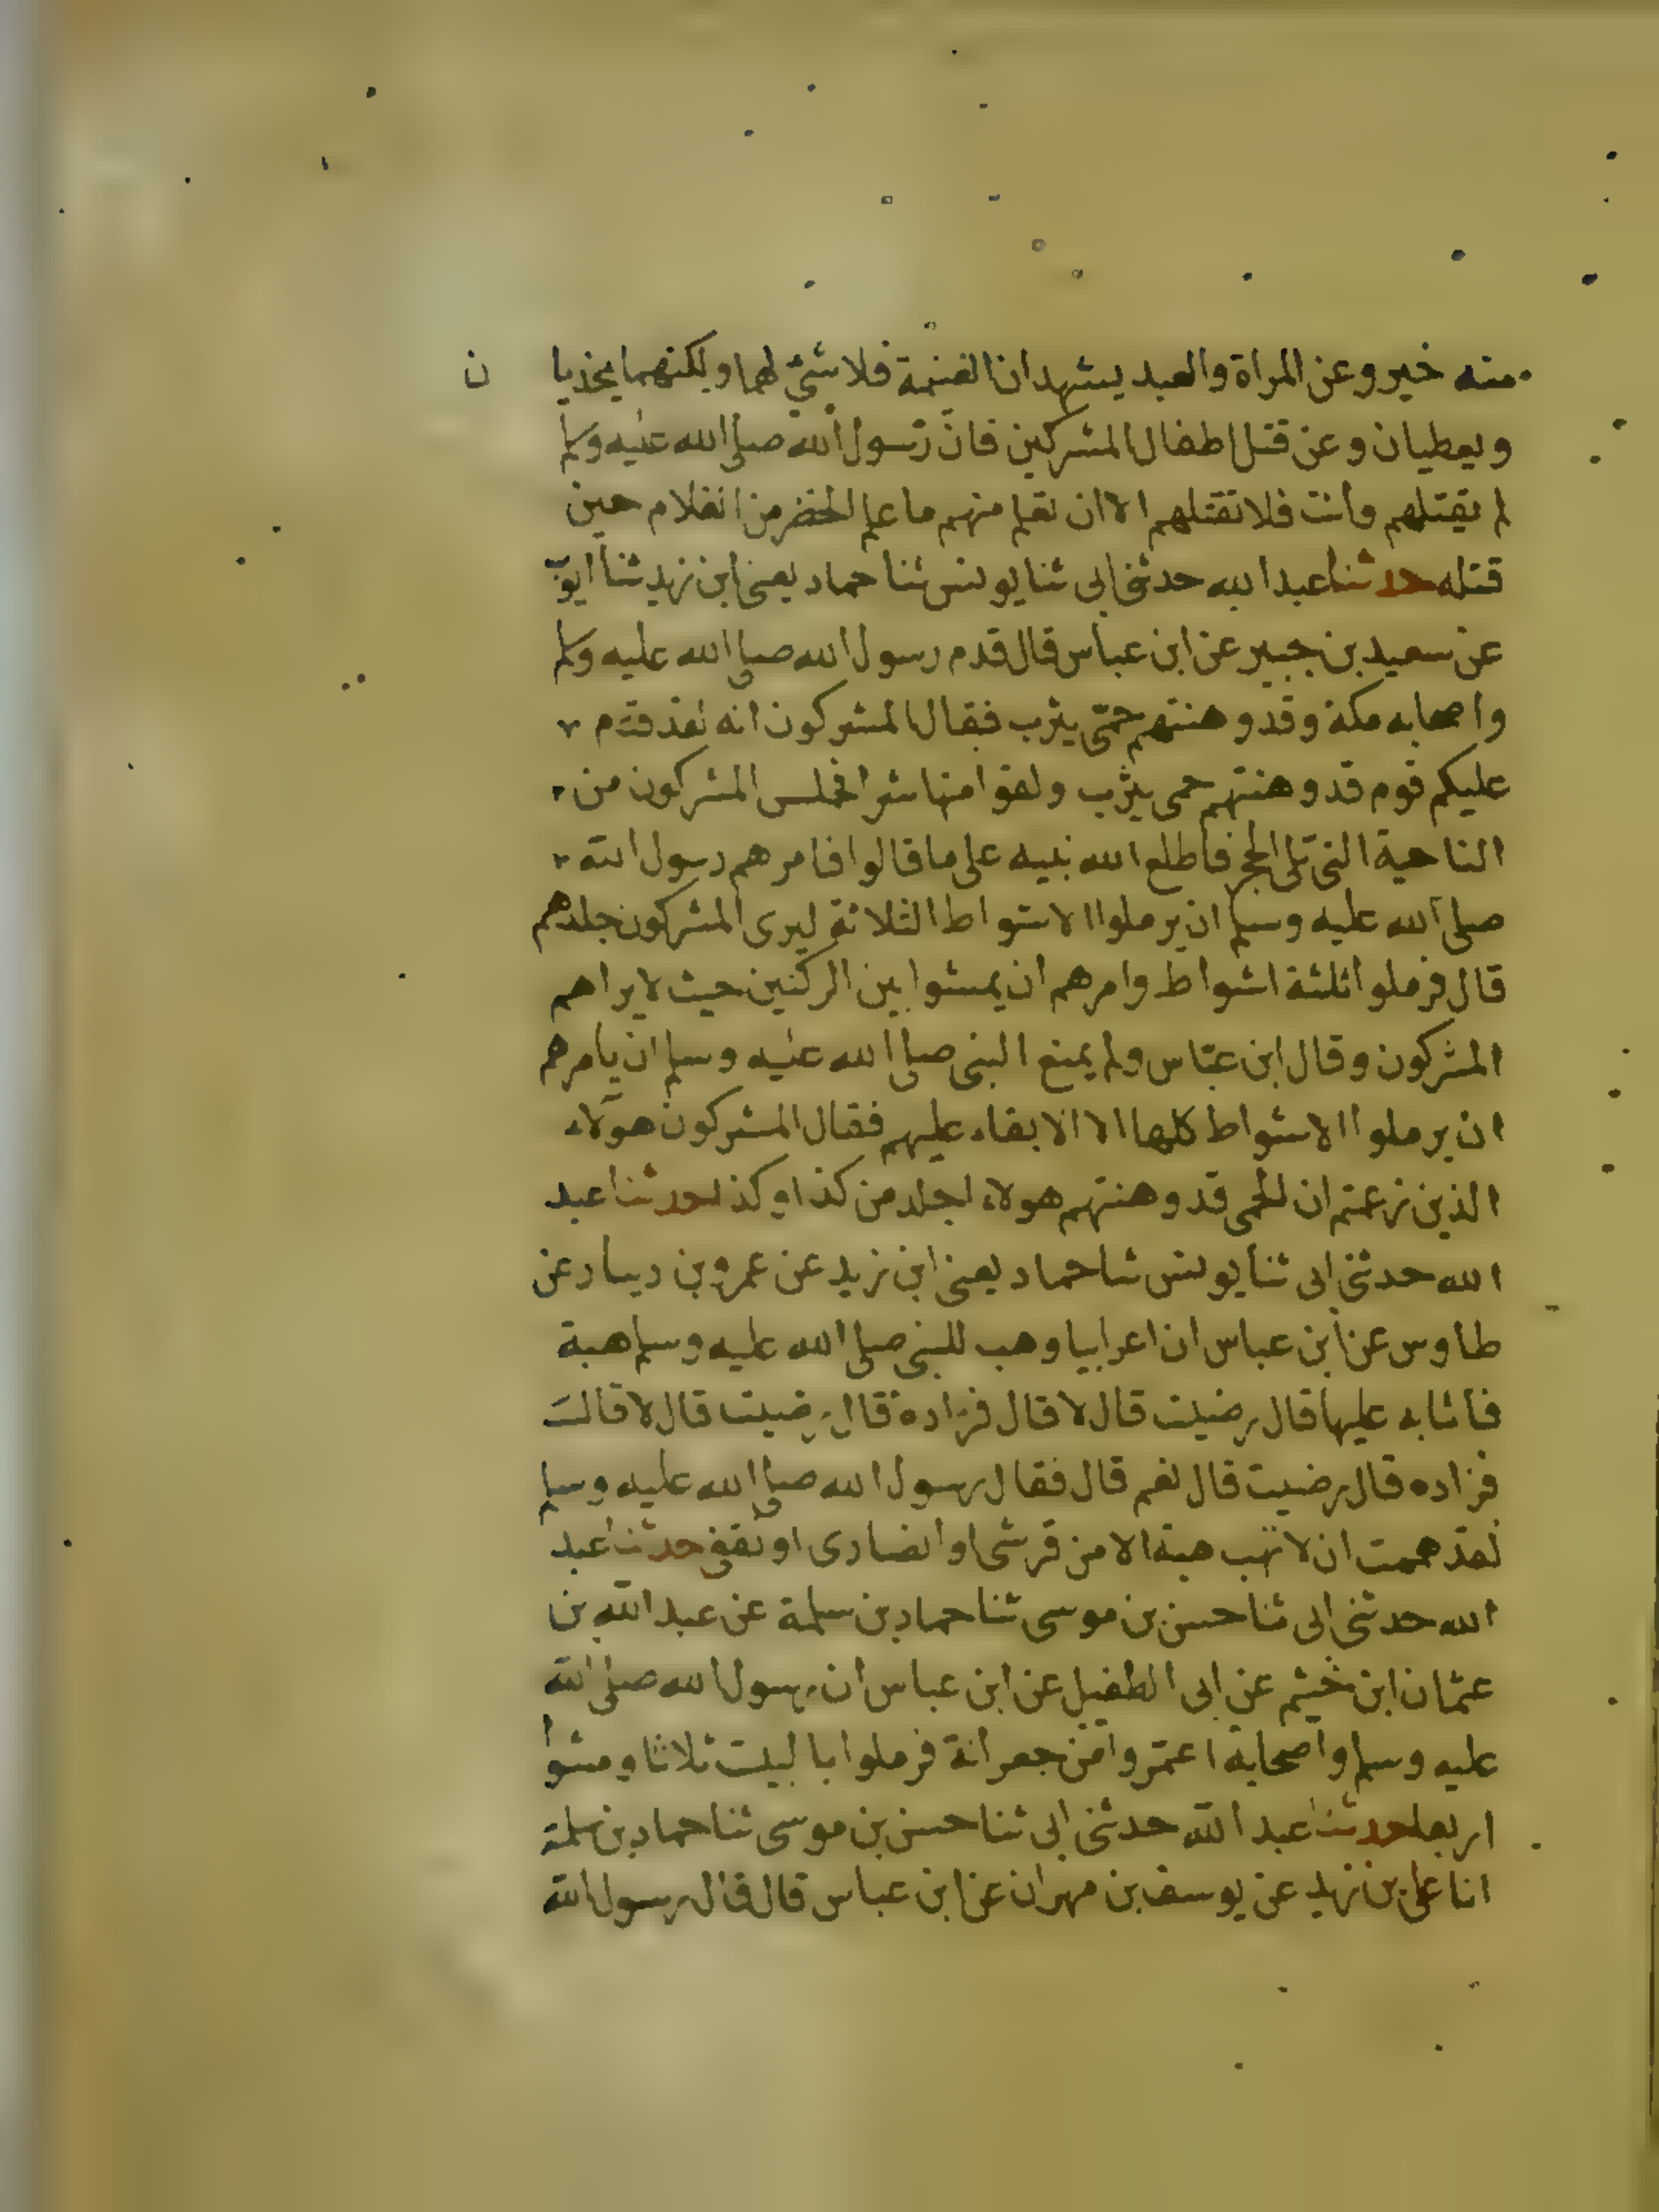 منه خير وعن المراة والعبد يشهدان الغنيمة فلا شئ لهما ولكنهما يحذيا ن
ويعطيان وعن قتل اطفال المشركين فان رسول الله صلى الله عليه وسلم
لم يقتلهم وانت فلا تقتلهم الا ان تعلم منهم ما علم الخضر من الغلام حين
قتله حدثنا عبد الله حدثني ابى ثنا يونس ثنا حماد يعنى ابن زيد ثنا ايوب
عن سعيد بن جبير عن ابن عباس قال قدم رسول الله صلى الله عليه وسلم
واصحابه مكة وقد وهنتهم حمى يثرب فقال المشركون انه لقد قدم
عليكم قوم قد وهنتهم حمى يثرب ولقوا منها شرا فجلس المشركون من
الناحية التى تلى الحجر فاطلع الله نبيه على ما قالوا فامرهم رسول الله
صلى الله عليه وسلم ان يرملوا الاشواط الثلاثة ليرى المشركون جلدهم
قال فرملوا ثلثة اشواط وامرهم ان يمشوا بين الركنين حيث لا يراهم
المشركون وقال ابن عباس ولم يمنع النبى صلى الله عليه وسلم ان يامرهم
ان يرملوا الاشواط كلها الا الابقاء عليهم فقال المشركون هولاء
الذين زعمتم ان الحمى قد وهنتهم هولاء اجلد من كذا وكذا حدثنا عبد
الله حدثني ابى ثنا يونس ثنا حماد يعنى ابن زيد عن عمرو بن دينار عن
طاوس عن ابن عباس ان اعرابيا وهب للنبى صلى الله عليه وسلم هبة
فاثابه عليها قال رضيت قال لا قال فزاده قال رضيت قال لا قال
فزاده قال رضيت قال نعم قال فقال رسول الله صلى الله عليه وسلم
لقد هممت ان لا اتهب هبة الا من قرشى او انصارى او ثقفى حدثنا عبد
الله حدثني ابى ثنا حسن بن موسى ثنا حماد بن سلمة عن عبد الله بن
عثمان ابن خثيم عن ابى الطفيل عن ابن عباس ان رسول الله صلى الله
عليه وسلم واصحابه اعتمروا من جعرانة فرملوا بالبيت ثلاثا ومشوا
اربعا حدثنا عبد الله حدثني ابى ثنا حسن بن موسى ثنا حماد بن سلمة
انا على بن زيد عن يوسف بن مهران عن ابن عباس قال قال رسول الله